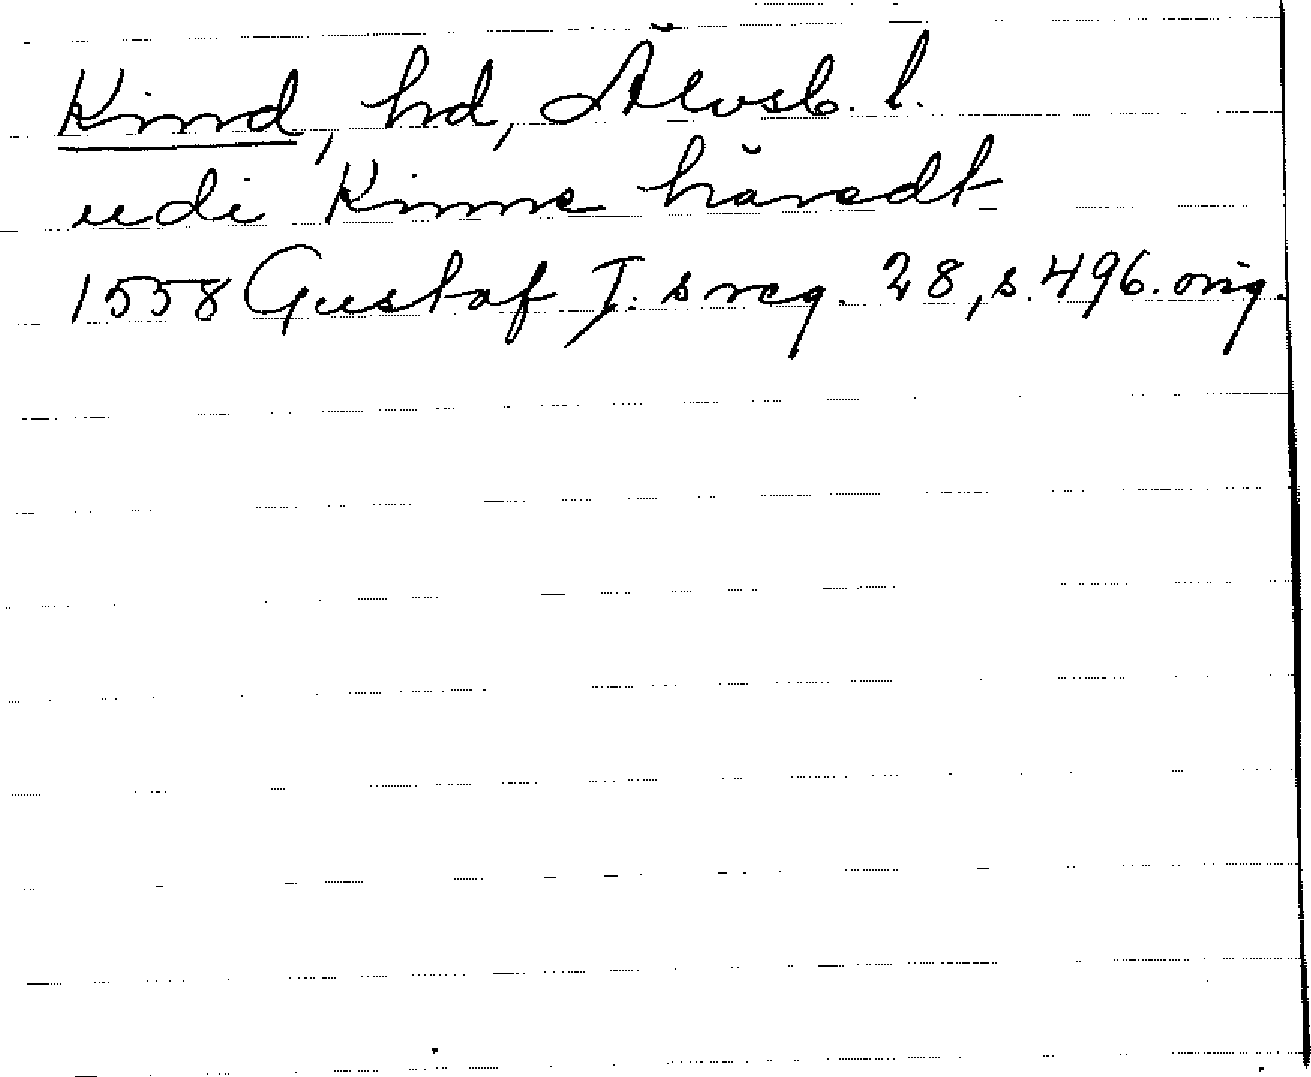 Kind, hd, Älvsb. l.
udi Kinne häredt
1558 Gustaf I:s reg. 28, s. 496. orig.